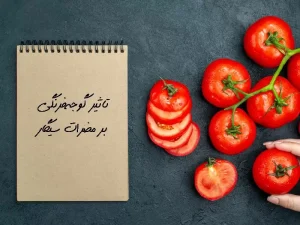 تاثیر گوجه‌فرنگی
بر مضرات سیگار